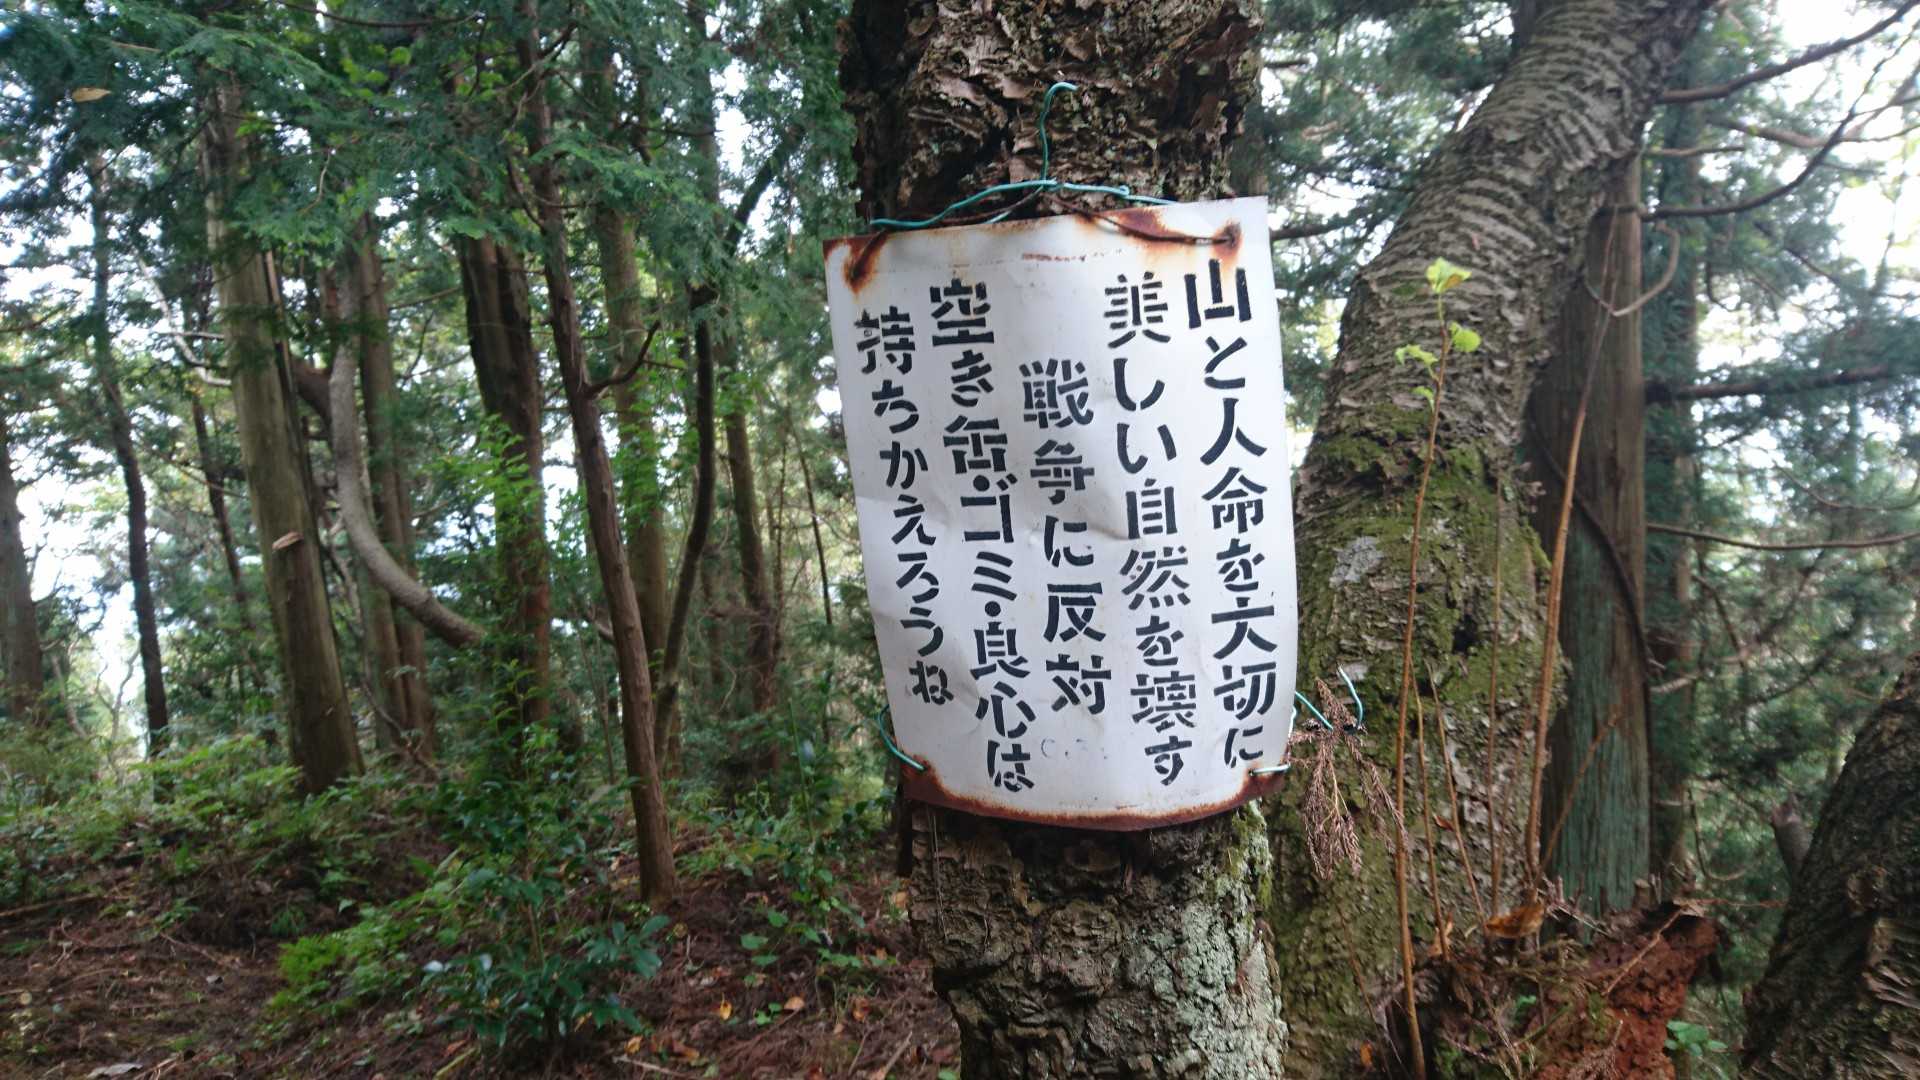 山と人命を大切に
美しい自然を壊す
戦争に反対
空き缶・ゴミ・良心は
持ちかえろうね